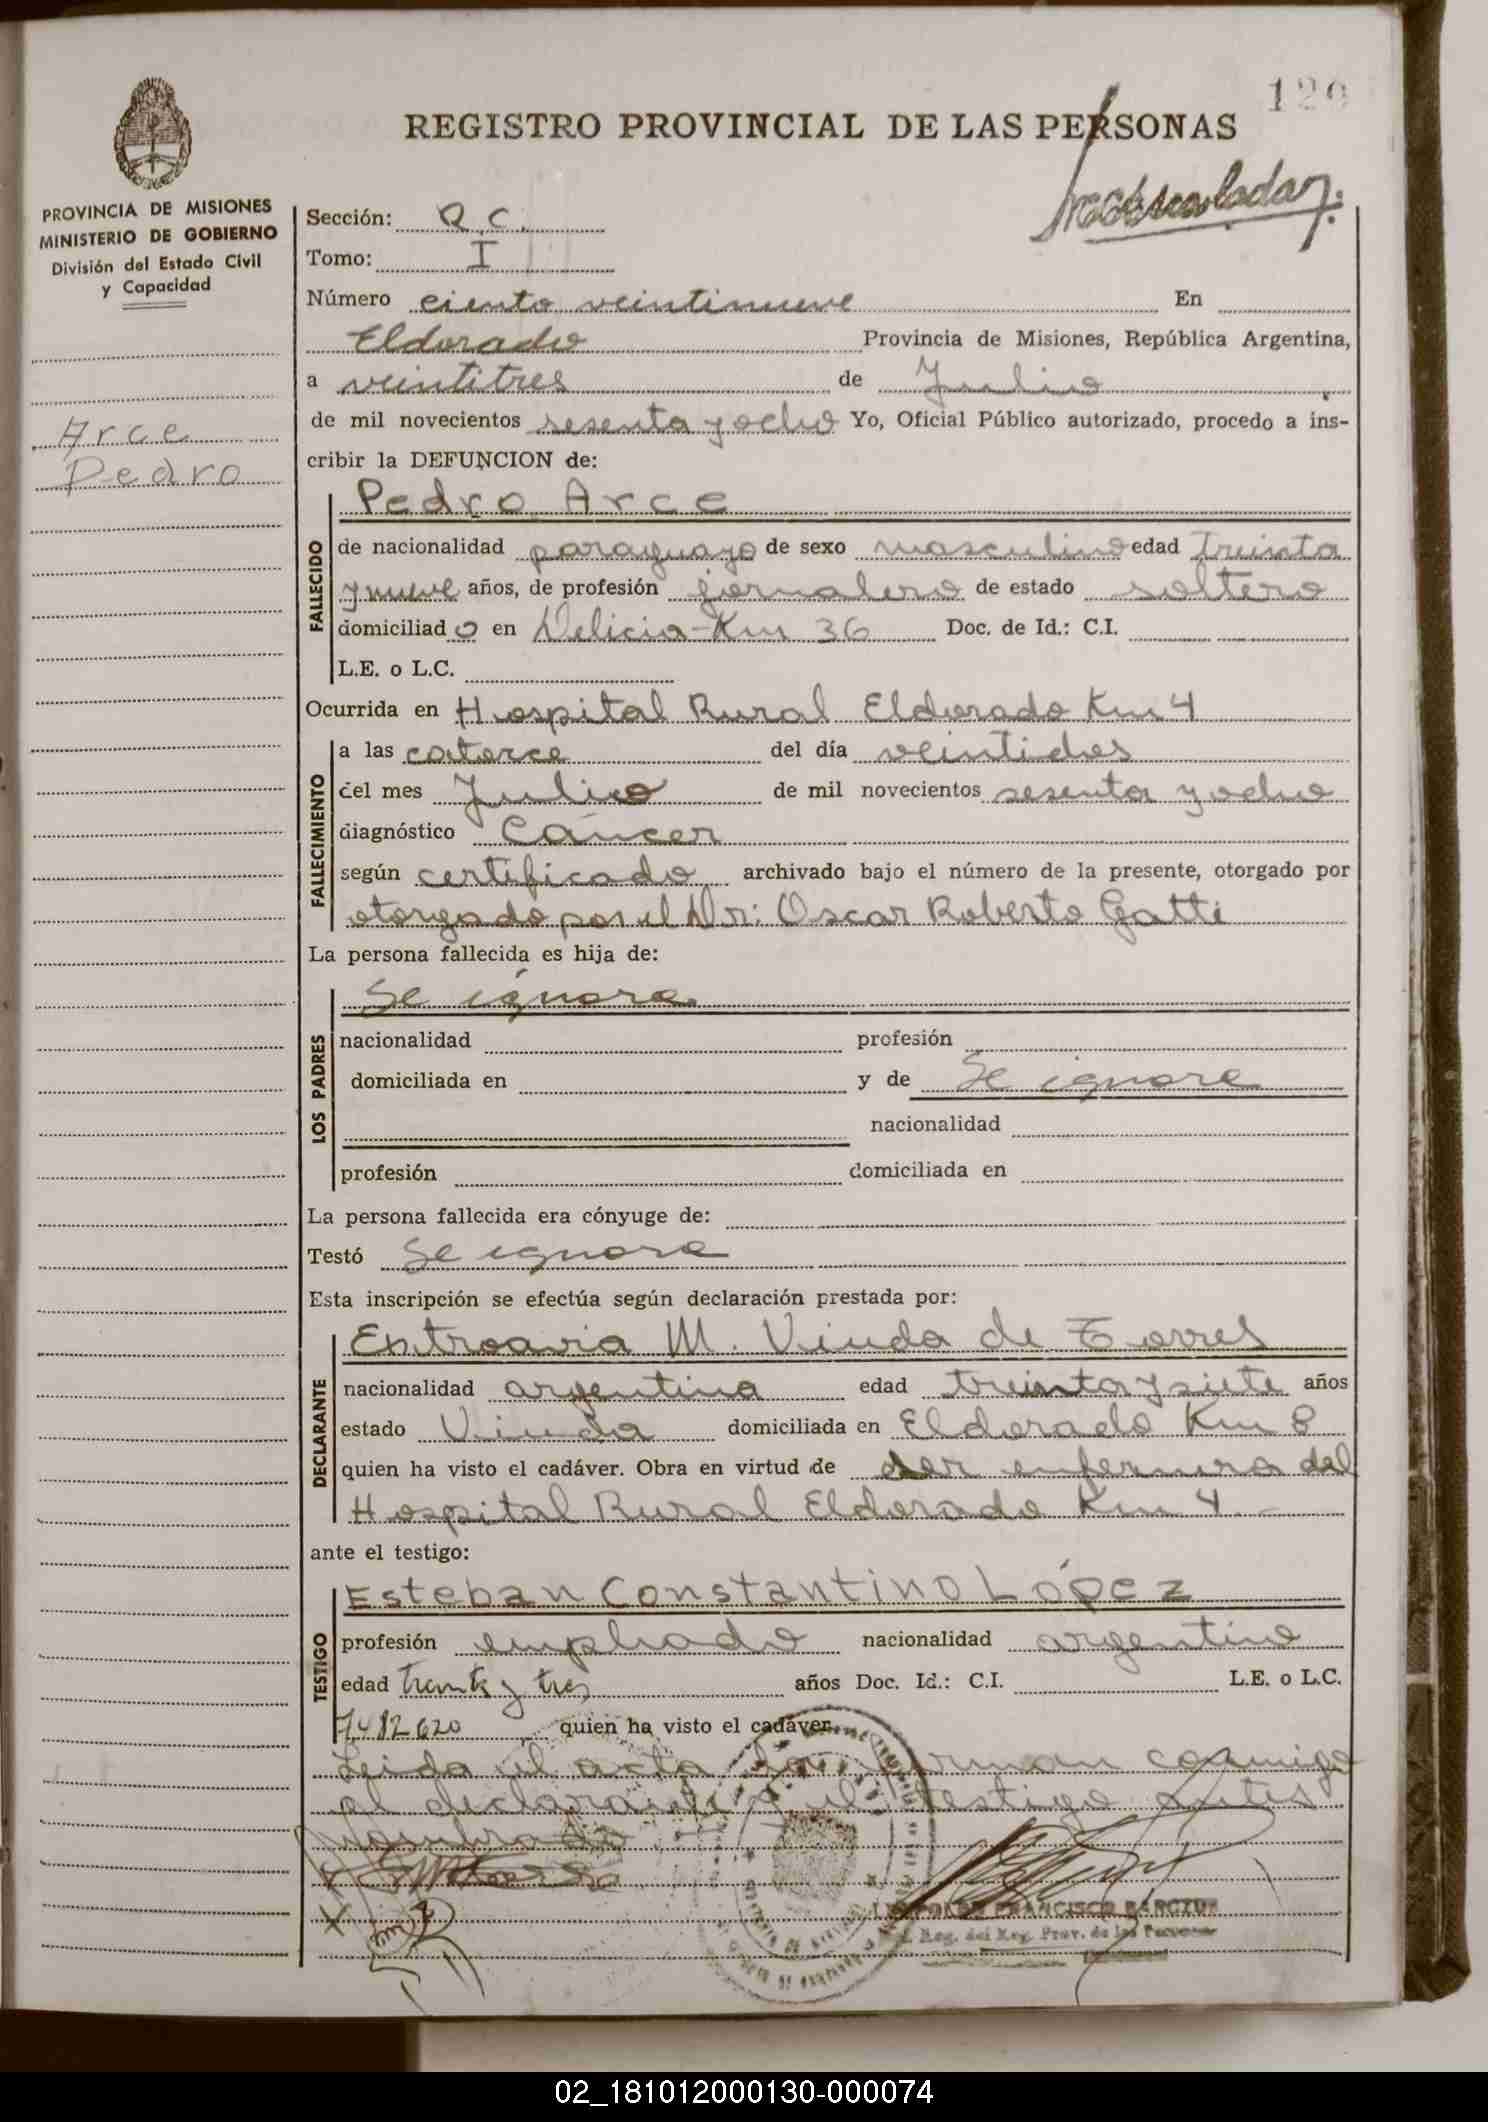 120
REGISTRO PROVINCIAL DE LAS PERSONAS
PROVINCIA DE MISIONES
MINISTERIO DE GOBIERNO
División del Estado Civil
y Capacidad
Arce
Pedro
Sección: R.C.
Tomo: I
Número ciento veintinueve En
Eldorado Provincia de Misiones, República Argentina,
a veintitres de Julio
de mil novecientos sesenta y ocho Yo, Oficial Público autorizado, procedo a ins-
cribir la DEFUNCION de:
FALLECIDO
Pedro Arce
de nacionalidad paraguayo de sexo masculino edad treinta
y nueve años, de profesión jornalero de estado soltero
domiciliado en Delicia-Km 36 Doc. de Id.: C.I.
L.E. o L.C.
Ocurrida en Hospital Rural Eldorado Km 4
FALLECIMIENTO
a las catorce del día veintidos
del mes Julio de mil novecientos sesenta y ocho
diagnóstico Cáncer
según certificado archivado bajo el número de la presente, otorgado por
otorgado por el Dr: Oscar Roberto Gatti
La persona fallecida es hija de:
LOS PADRES
Se ignora
nacionalidad profesión
domiciliada en y de Se ignora
nacionalidad
profesión domiciliada en
La persona fallecida era cónyuge de:
Testó Se ignora
Esta inscripción se efectúa según declaración prestada por:
DECLARANTE
M. Viuda de Torres
nacionalidad argentina edad treinta y siete años
estado Viuda domiciliada en Eldorado Km 8
quien ha visto el cadáver. Obra en virtud de ser enfermera del
Hospital Rural Eldorado Km 4.-
ante el testigo:
TESTIGO
Esteban Constantino López
profesión empleado nacionalidad argentino
edad treinta y tres años Doc. Id.: C.I. L.E. o L.C.
7482620 quien ha visto el cadáver.
Leida el acta la firman conmigo
el declarante y el testigo antes
nombrado.-
FRANCISCO
Reg. del Reg. Prov. de las Personas
02_181012000130-000074